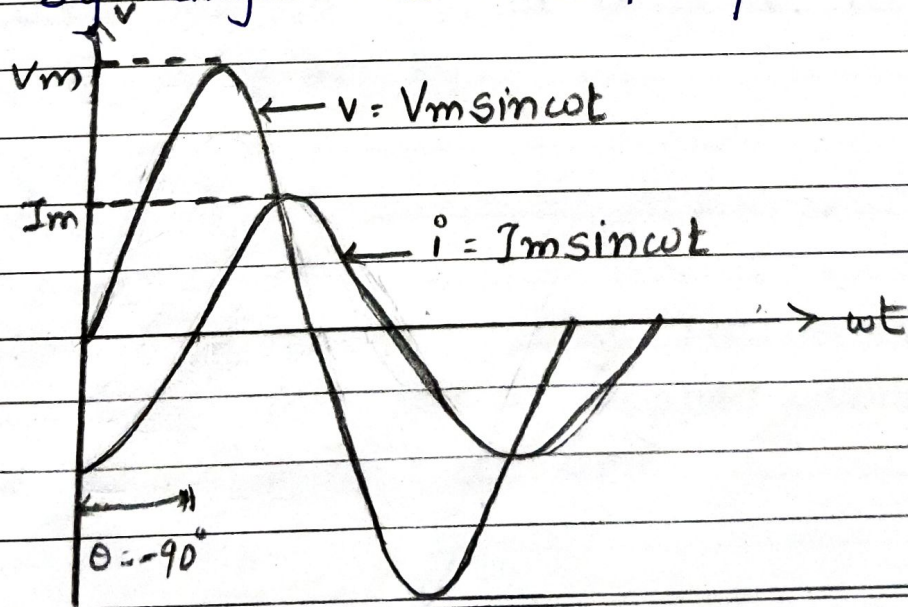 v
Vm
v = Vm sin ωt
Im
i = Im sin ωt
ωt
θ = -90°